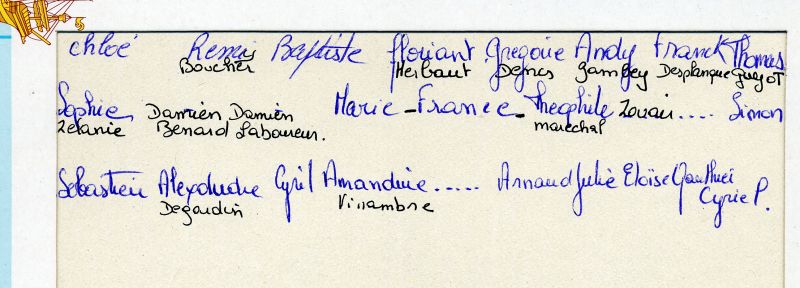 chloé Remis Baptiste floriant Gregoire Andy Franck Thomas
Boucher Herbaut Denis Gambey Desplanque Guyot
Sophie Damien Damien Marie-France- Theophile Zouari.... Simon
Zelanie Benard Laboureur. marechal
Sebastien Alexandre Cyril Amandine..... Arnaud Julie Eloïse Gauthier
Degardin Villambre Cyrie P.